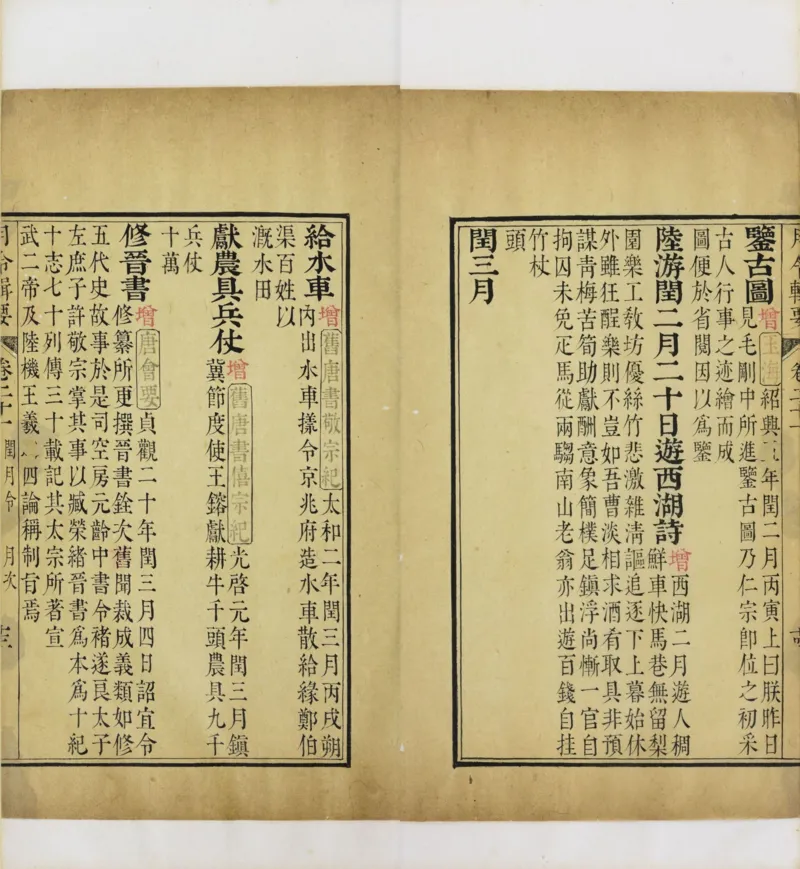 月令輯要 卷二十
鑒古圖 增 玉海 紹興 年閏二月丙寅上曰朕昨日
見毛剛中所進鑒古圖乃仁宗卽位之初采
古人行事之迹繪而成
圖便於省閱因以爲鑒
陸游閏二月二十日遊西湖詩 增 西湖二月遊人稠
鮮車快馬巷無留梨
園樂工敎坊優絲竹悲激雜淸謳追逐下上暮始休
外雖狂醒樂則不豈如吾曹淡相求酒肴取具非預
謀靑梅苦筍助獻酬意象簡樸足鎭浮尚慚一官自
拘囚未免疋馬從兩騶南山老翁亦出遊百錢自挂
竹杖
頭
閏三月
給水車 增 舊唐書敬宗紀 太和二年閏三月丙戌朔
內出水車樣令京兆府造水車散給緣鄭伯
渠百姓以
漑水田
獻農具兵仗 增 舊唐書僖宗紀 光啓元年閏三月鎭
冀節度使王鎔獻耕牛千頭農具九千
兵仗
十萬
修晉書 增 唐會要 貞觀二十年閏三月四日詔宜令
修纂所更撰晉書銓次舊聞裁成義類如修
五代史故事於是司空房元齡中書令褚遂良太子
左庶子許敬宗掌其事以臧榮緒晉書爲本爲十紀
十志七十列傳三十載記其太宗所著宣
武二帝及陸機王羲 四論稱制旨焉
月令輯要 卷二十一 閏月令 月次